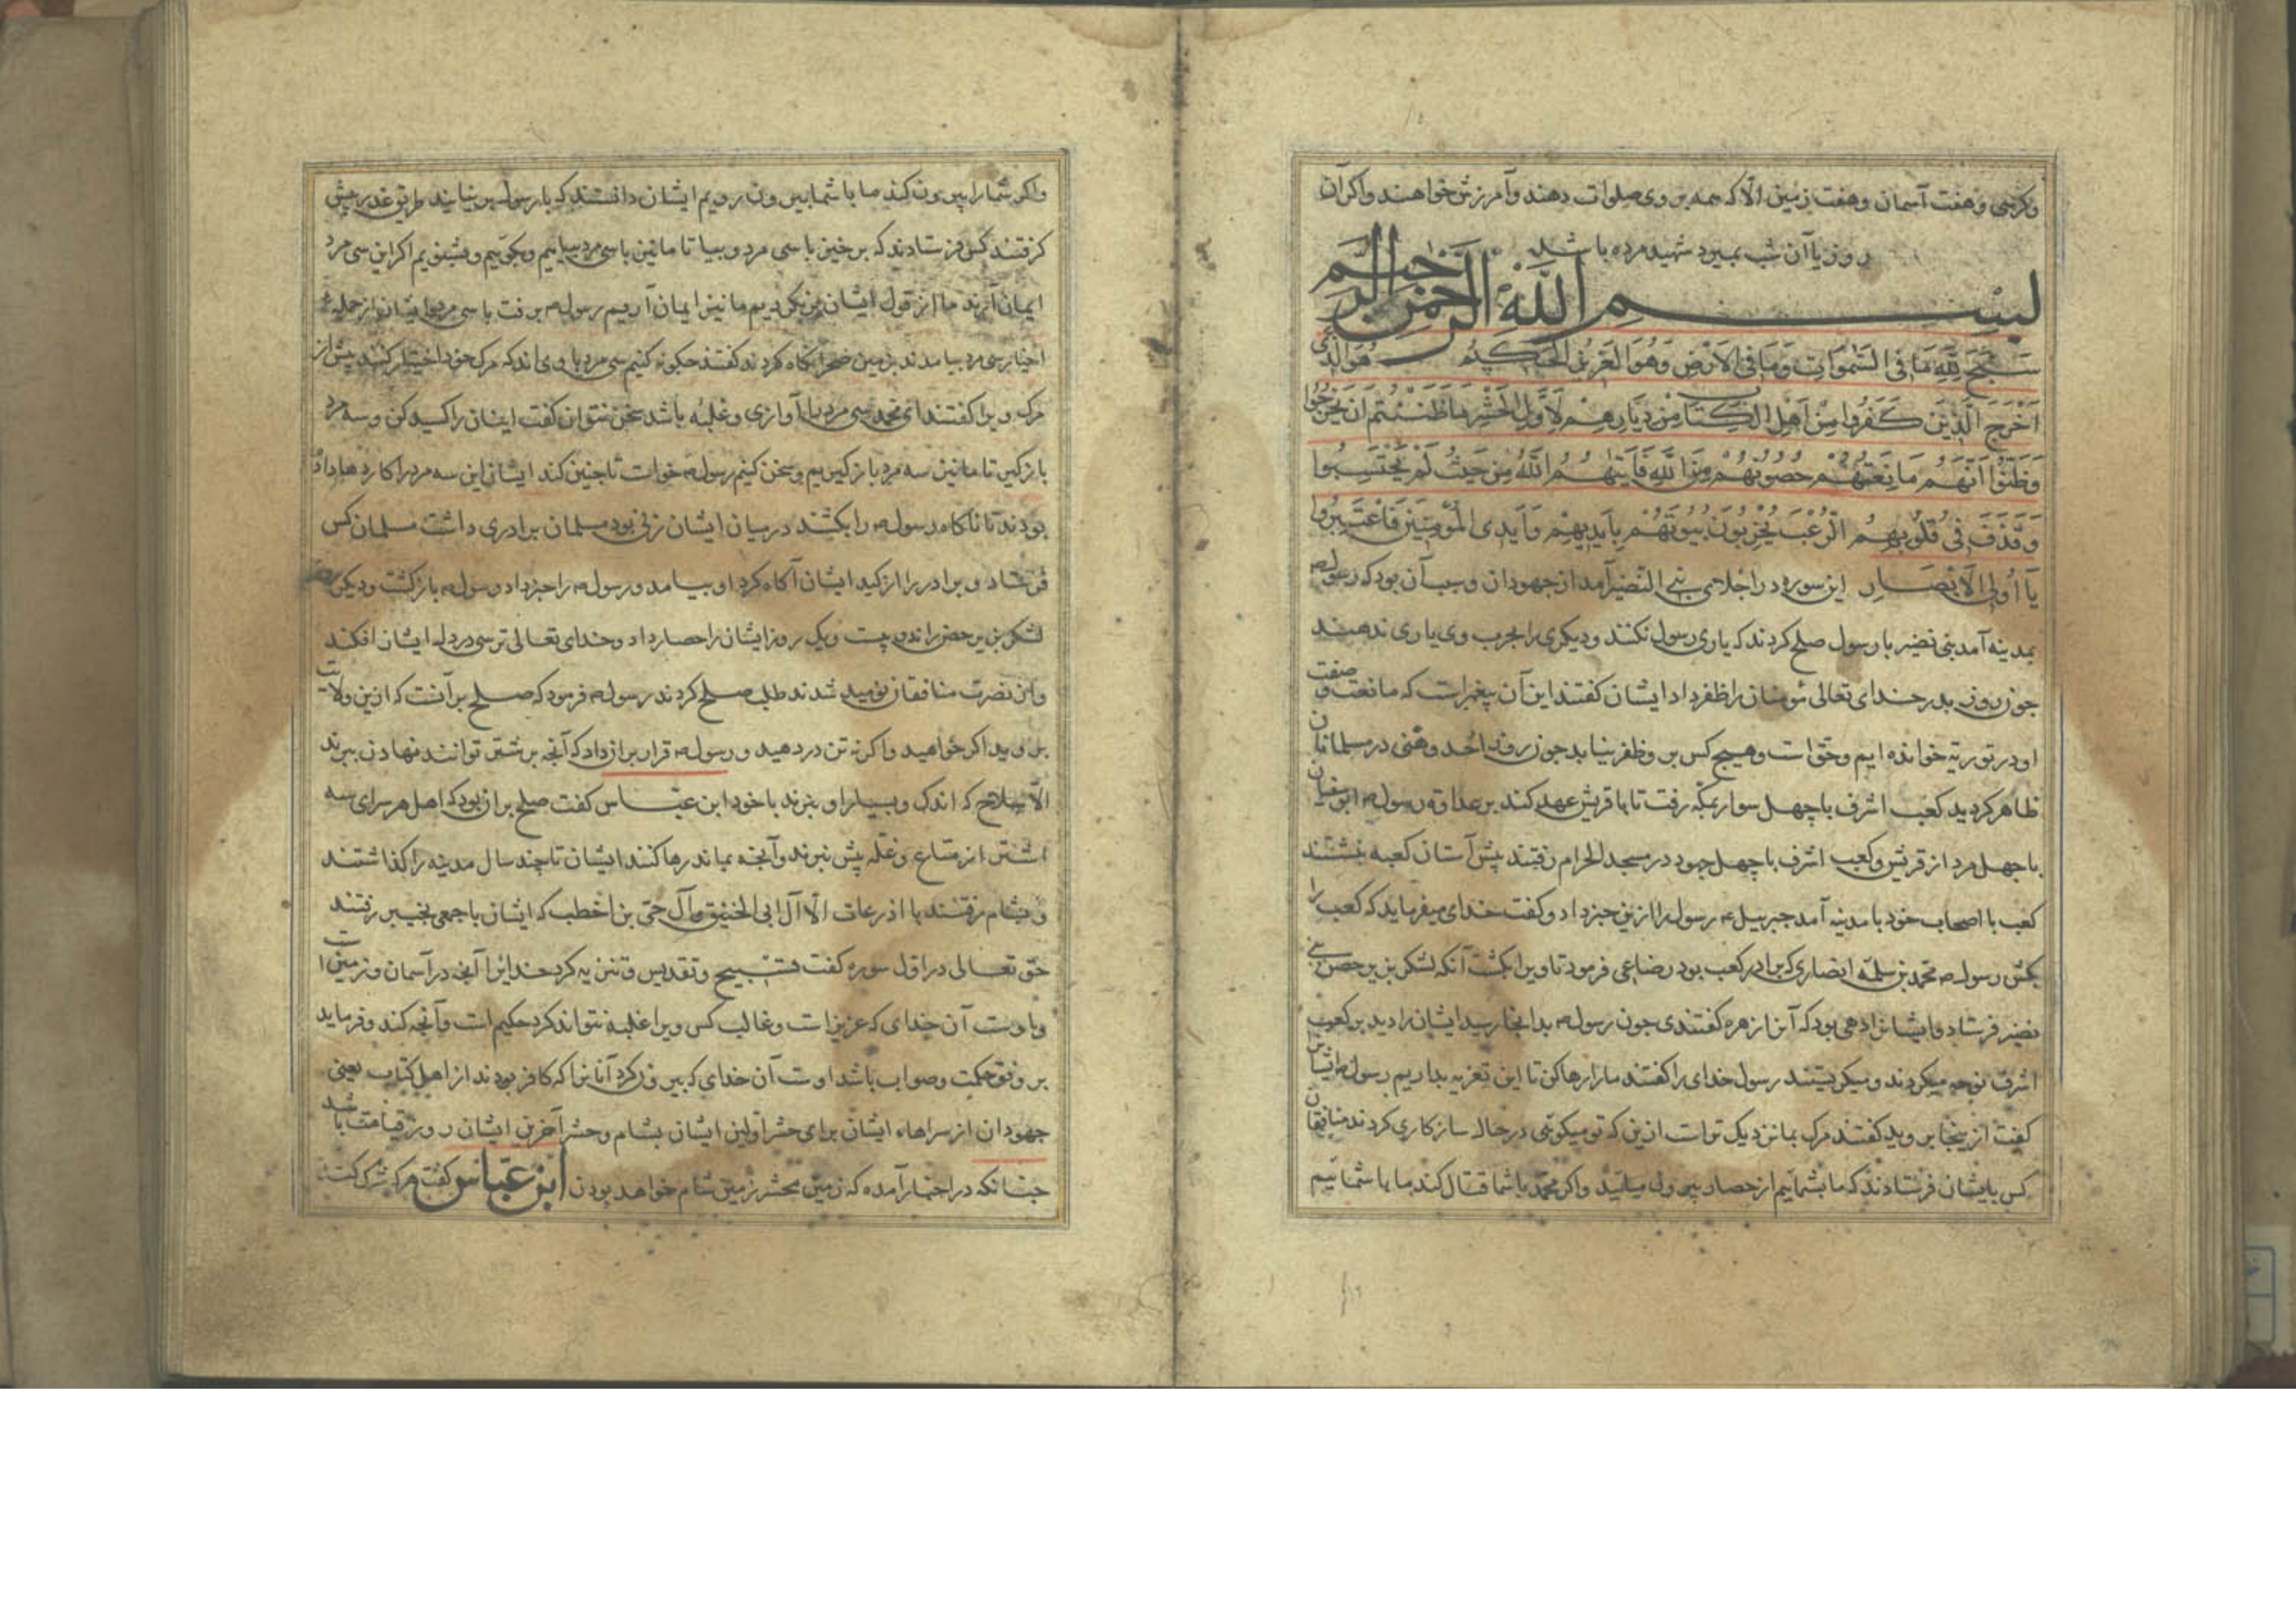 وکرسی و هفت آسمان و هفت زمین الّا که همه بر وی صلوات دهند و آمرزش خواهند و اکر آن
روز یا آن شب بمیرد شهید مرده باشد
بسم الله الرحمن الرحیم
سَبَّحَ لِلّهِ مَا فِی السَّمٰوَاتِ وَمَا فِی الْاَرْضِ وَهُوَ الْعَزِیزُ الْحَکِیمُ هُوَ الَّذِی
اَخْرَجَ الَّذِینَ کَفَرُوا مِنْ اَهْلِ الْکِتَابِ مِنْ دِیَارِهِمْ لِاَوَّلِ الْحَشْرِ مَا ظَنَنْتُمْ اَنْ یَخْرُجُوا
وَظَنُّوا اَنَّهُمْ مَانِعَتُهُمْ حُصُونُهُمْ مِنَ اللّهِ فَاَتٰیهُمُ اللّهُ مِنْ حَیْثُ لَمْ یَحْتَسِبُوا
وَقَذَفَ فِی قُلُوبِهِمُ الرُّعْبَ یُخْرِبُونَ بُیُوتَهُمْ بِاَیْدِیهِمْ وَاَیْدِی الْمُؤْمِنِینَ فَاعْتَبِرُوا
یَا اُولِی الْاَبْصَارِ این سوره در اجلای بنی النضیر آمد از جهودان و سبب آن بود که رسول ص
بمدینه آمد بنی نضیر با رسول صلح کردند که یاری رسول نکنند و دیکری را بحرب وی یاری ندهند
جون روز بدر خدای تعالی مؤمنان را ظفر داد ایشان کفتند این آن پیغمبر است که ما نعت و صفت
او در توریة خوانده ایم و حق است و هیچ کس بر وظفر نیابد جون روز احد وهنی در مسلمانان
ظاهر کردید کعب اشرف با چهل سوار بمکّه رفت تا با قریش عهد کند بر عداوة رسول ص ابوسفیان
با چهل مرد از قریش و کعب اشرف با چهل جهود در مسجد الحرام رفتند پیش آستان کعبه بنشستند
کعب با اصحاب خود با مدینه آمد جبرییل ع رسول را ازین خبر داد و کفت خدای میفرماید که کعب را
بکش رسول ص محمد بن سلمه انصاری که برادر کعب بود رضاعی فرمود تا ویرا بکشت آنکه لشکر بزیر حصن بنی
نضیر فرستاد و ایشانرا دهی بود که آنرا زهره کفتندی جون رسول ص بدانجا رسید ایشان را دید بر کعب
اشرف نوحه میکردند و میکریستند رسول خدای را کفتند ما را رها کن تا این تعزیه بداریم رسول ص ایشانرا
کفت ازینجا بروید کفتند مرک بما نزدیک تر است ازین که تو میکوئی در حال ساز کاری کردند منافقان
کس بایشان فرستادند که ما بشمائیم از حصار بیرون میائید و اکر محمّد با شما قتال کند ما با شمائیم
واکر شما را بیرون کند ما با شما بیرون رویم ایشان دانستند که با رسول بر نیایند طریق غدر پیش
کرفتند کس فرستادند که برخیز با سی مرد و بیا تا ما نیز با سی مرد بیاییم و بکوییم و بشنویم اکر این سی مرد
ایمان آرند ما از قول ایشان برنکردیم ما نیز ایمان آریم رسول ص برفت با سی مرد و ایشان از جمله
احبار سی مرد بیامدند بزمین صحرا نکاه کردند کفتند حکونه کنیم سی مرد با وی اند که مرک خود اختیار کنند پیش از
مرک ویرا کفتند ای محمد سی مرد را آوازی و غلبه باشد سخن نتوان کفت ایشان را کسید کن و سه مرد
باز کیر تا ما نیز سه مرد باز کیریم و سخن کنیم رسول ص خواست تا چنین کند ایشان این سه مرد را کاردها داده
بودند تا ناکاه رسول ص را بکشند در میان ایشان زنی بود مسلمان برادری داشت مسلمان کس
فرستاد و برادر را از کید ایشان آکاه کرد او بیامد و رسول ص را خبر داد رسول ص باز کشت و دیکر روز
لشکر بزیر حصن راند و بیست و یک روز ایشان را حصار داد و خدای تعالی ترسی در دل ایشان افکند
و از نصرت منافقان نومید شدند طلب صلح کردند رسول ص فرمود که صلح بر آنست که ازین ولایت
بروید اکر خواهید و اکر نه تن در دهید و رسول ص قرار بر آن داد که آنجه بر شتر توانند نهادن ببرند
الّا سلاح که اندک و بسیار او نبرند با خود ابن عبّاس کفت صلح بر آن بود که اهل هر سرای سه
اشتر از متاع و غلّه بیش نبرند و آنجه بماند رها کنند ایشان تا چند سال مدینه را کذاشتند
و بشام رفتند با اذرعات الّا آل ابی الحقیق و آل حیّ بن اخطب که ایشان با جمعی بخیبر رفتند
حق تعالی در اوّل سوره کفت تسبیح و تقدیس و تنزیه کرد خدایرا آنجه در آسمان و زمین است
و اوست آن خدای که عزیز است و غالب کس ویرا غلبه نتواند کرد حکیم است و آنجه کند و فرماید
بر وفق حکمت و صواب باشد اوست آن خدای که بیرون کرد آنانرا که کافر بودند از اهل کتاب یعنی
جهودان از سراهاء ایشان برای حشر اولین ایشان بشام و حشر آخرین ایشان روز قیامت باشد
جنانکه در اخبار آمده که زمین محشر زمین شام خواهد بودن ابن عبّاس کفت هر که شک کند